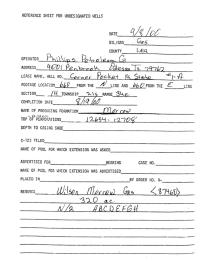 REFERENCE SHEET FOR UNDESIGNATED WELLS
DATE 9/8/00
OIL/GAS Gas
COUNTY Lea
OPERATOR Phillips Petroleum Co
ADDRESS 4001 Penbrook Odessa Tx 79762
LEASE NAME, WELL NO. Corner Pocket St State #1-A
FOOTAGE LOCATION 660 FROM THE N LINE AND 660 FROM THE E LINE
SECTION TOWNSHIP 21s RANGE 34e
COMPLETION DATE 8/9/00
NAME OF PRODUCING FORMATION Morrow
TOP OF PERFORATIONS 12684-12708
DEPTH TO CASING SHOE
C-123 FILED
NAME OF POOL FOR WHICH EXTENSION WAS ASKED
ADVERTISED FOR HEARING CASE NO.
NAME OF POOL FOR WHICH EXTENSION WAS ADVERTISED
PLACED IN BY ORDER NO. R-
REMARKS Wilson Morrow Gas <87460>
320 ac
N/2 ABCDEFGH